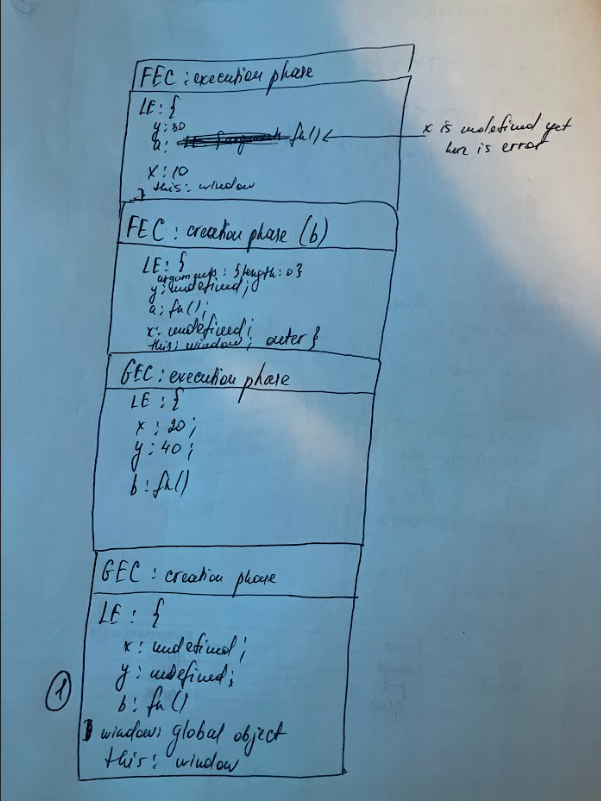 FEC : execution phase
LE : {
y : 30
a : fn()
x is undefined yet
here is error
x : 10
this : window
}
FEC : creation phase (b)
LE : {
arguments : {length : 0}
y : undefined;
a : fn();
x : undefined;
this : window; outer }
GEC : execution phase
LE : {
x : 20;
y : 40;
b : fn()
GEC : creation phase
LE : {
x : undefined;
y : undefined;
b : fn()
1
window : global object
this : window